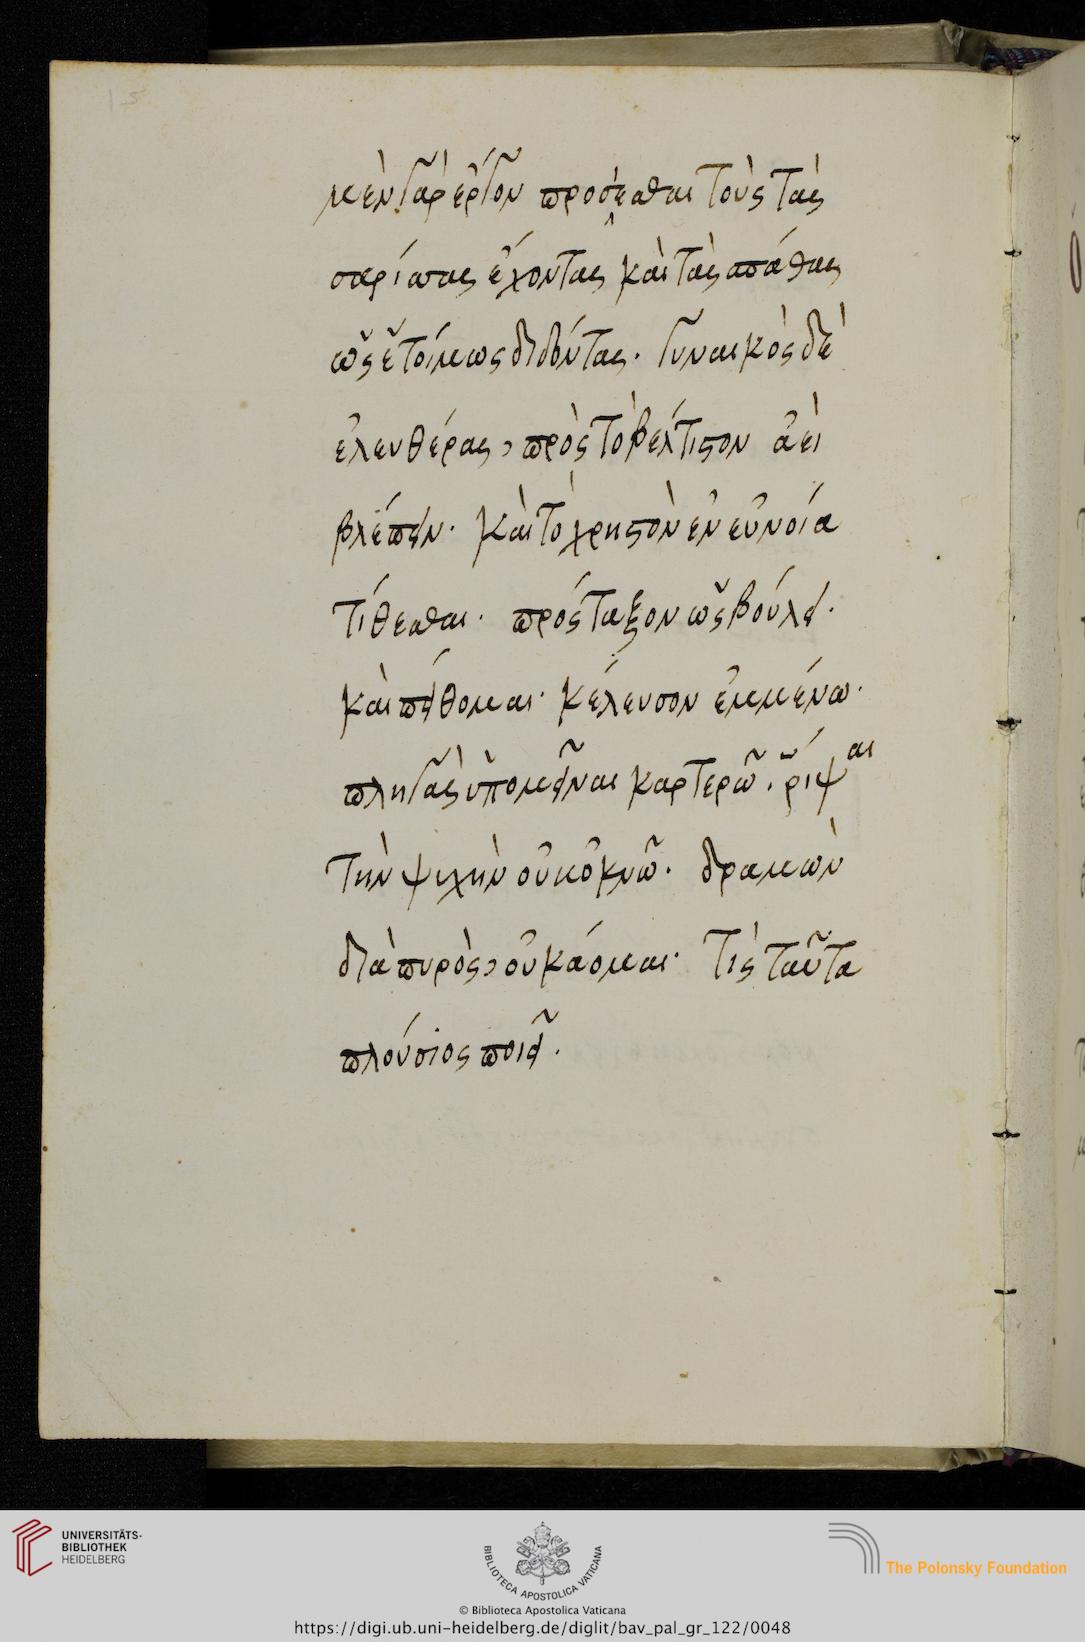 μὲν γὰρ ἔργον προσίεσθαι τοὺς τὰς
σαρίσσας ἔχοντας καὶ τὰς σπάθας
ὡς ἑτοίμως διδόντας. γυναικὸς δὲ
ἐλευθέρας, πρὸς τὸ βέλτιστον ἀεὶ
βλέπειν. καὶ τὸ χρηστὸν ἐν εὐνοία
τίθεσθαι. πρόσταξον ὡς βούλει.
καὶ πείθομαι. κέλευσον ἐμμένω.
πληγὰς ὑπομεῖναι καρτερῶ. ῥίψαι
τὴν ψυχὴν οὐκ ὀκνῶ. δραμὼν
διὰ πυρὸς, οὐ κάομαι. τίς ταῦτα
πλούσιος ποιεῖ.
UNIVERSITÄTS-
BIBLIOTHEK
HEIDELBERG
BIBLIOTECA APOSTOLICA VATICANA
The Polonsky Foundation
© Biblioteca Apostolica Vaticana
https://digi.ub.uni-heidelberg.de/diglit/bav_pal_gr_122/0048